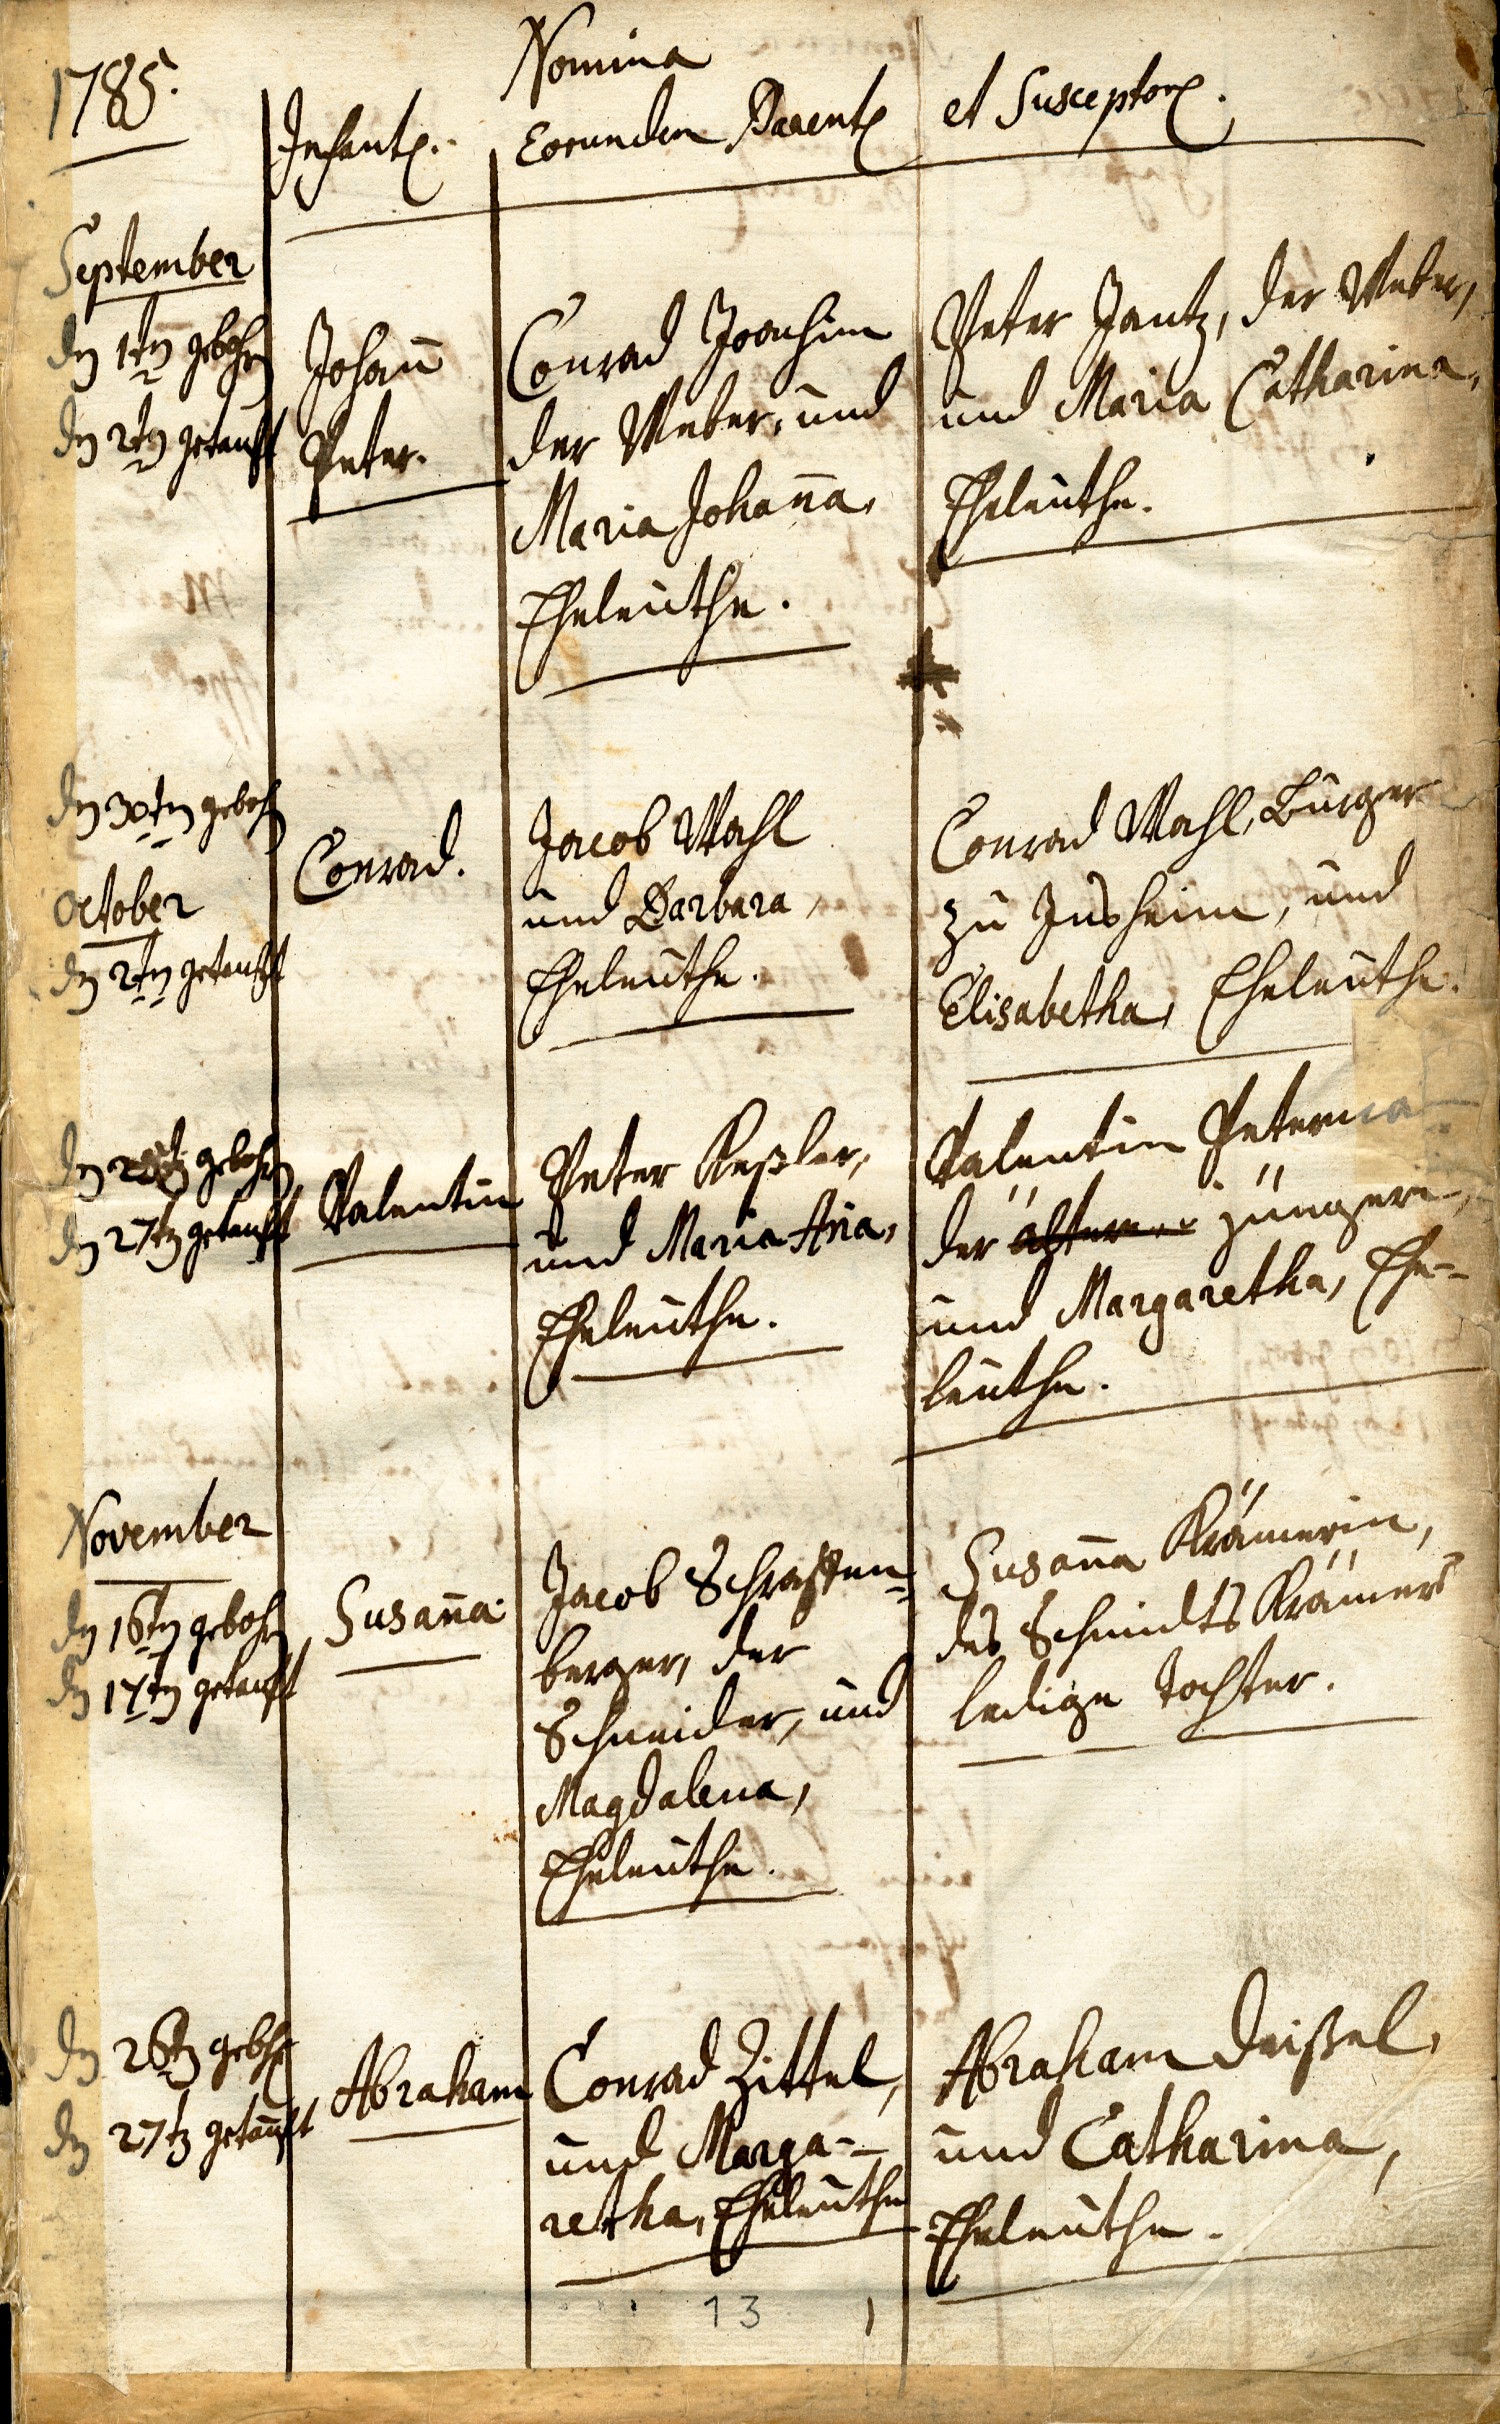 1785.
Nomina
Infant.
Eorundem Parent
et Susceptor.
September
den 1ten gebohren
den 2ten getaufft
Johann̄
Peter.
Conrad Joachim
der Weber, und
Maria Johan̄a,
Eheleuthe.
Peter Jantz, der Weber,
und Maria Catharina,
Eheleuthe.
den 30ten gebohren
October
den 2ten getaufft
Conrad.
Jacob Wahl
und Barbara,
Eheleuthe.
Conrad Wahl, Bürger
zu Insheim, und
Elisabetha, Eheleuthe.
den gebohren
den 27ten getaufft
Valentin
Peter Keßler,
und Maria An̄a,
Eheleuthe.
Valentin Peterma
der ältere jüngere,
und Margaretha, Ehe-
leuthe.
November
den 16ten gebohren
den 17ten getaufft
Susan̄a.
Jacob Schrassen-
berger, der
Schneider, und
Magdalena,
Eheleuthe.
Susan̄a Krämerin,
des Schmidts Krämers
ledige Tochter.
den 26ten gebohren
den 27ten getaufft
Abraham
Conrad Zittel,
und Marga-
retha, Eheleuthe
Abraham Deißel,
und Catharina,
Eheleuthe.
13